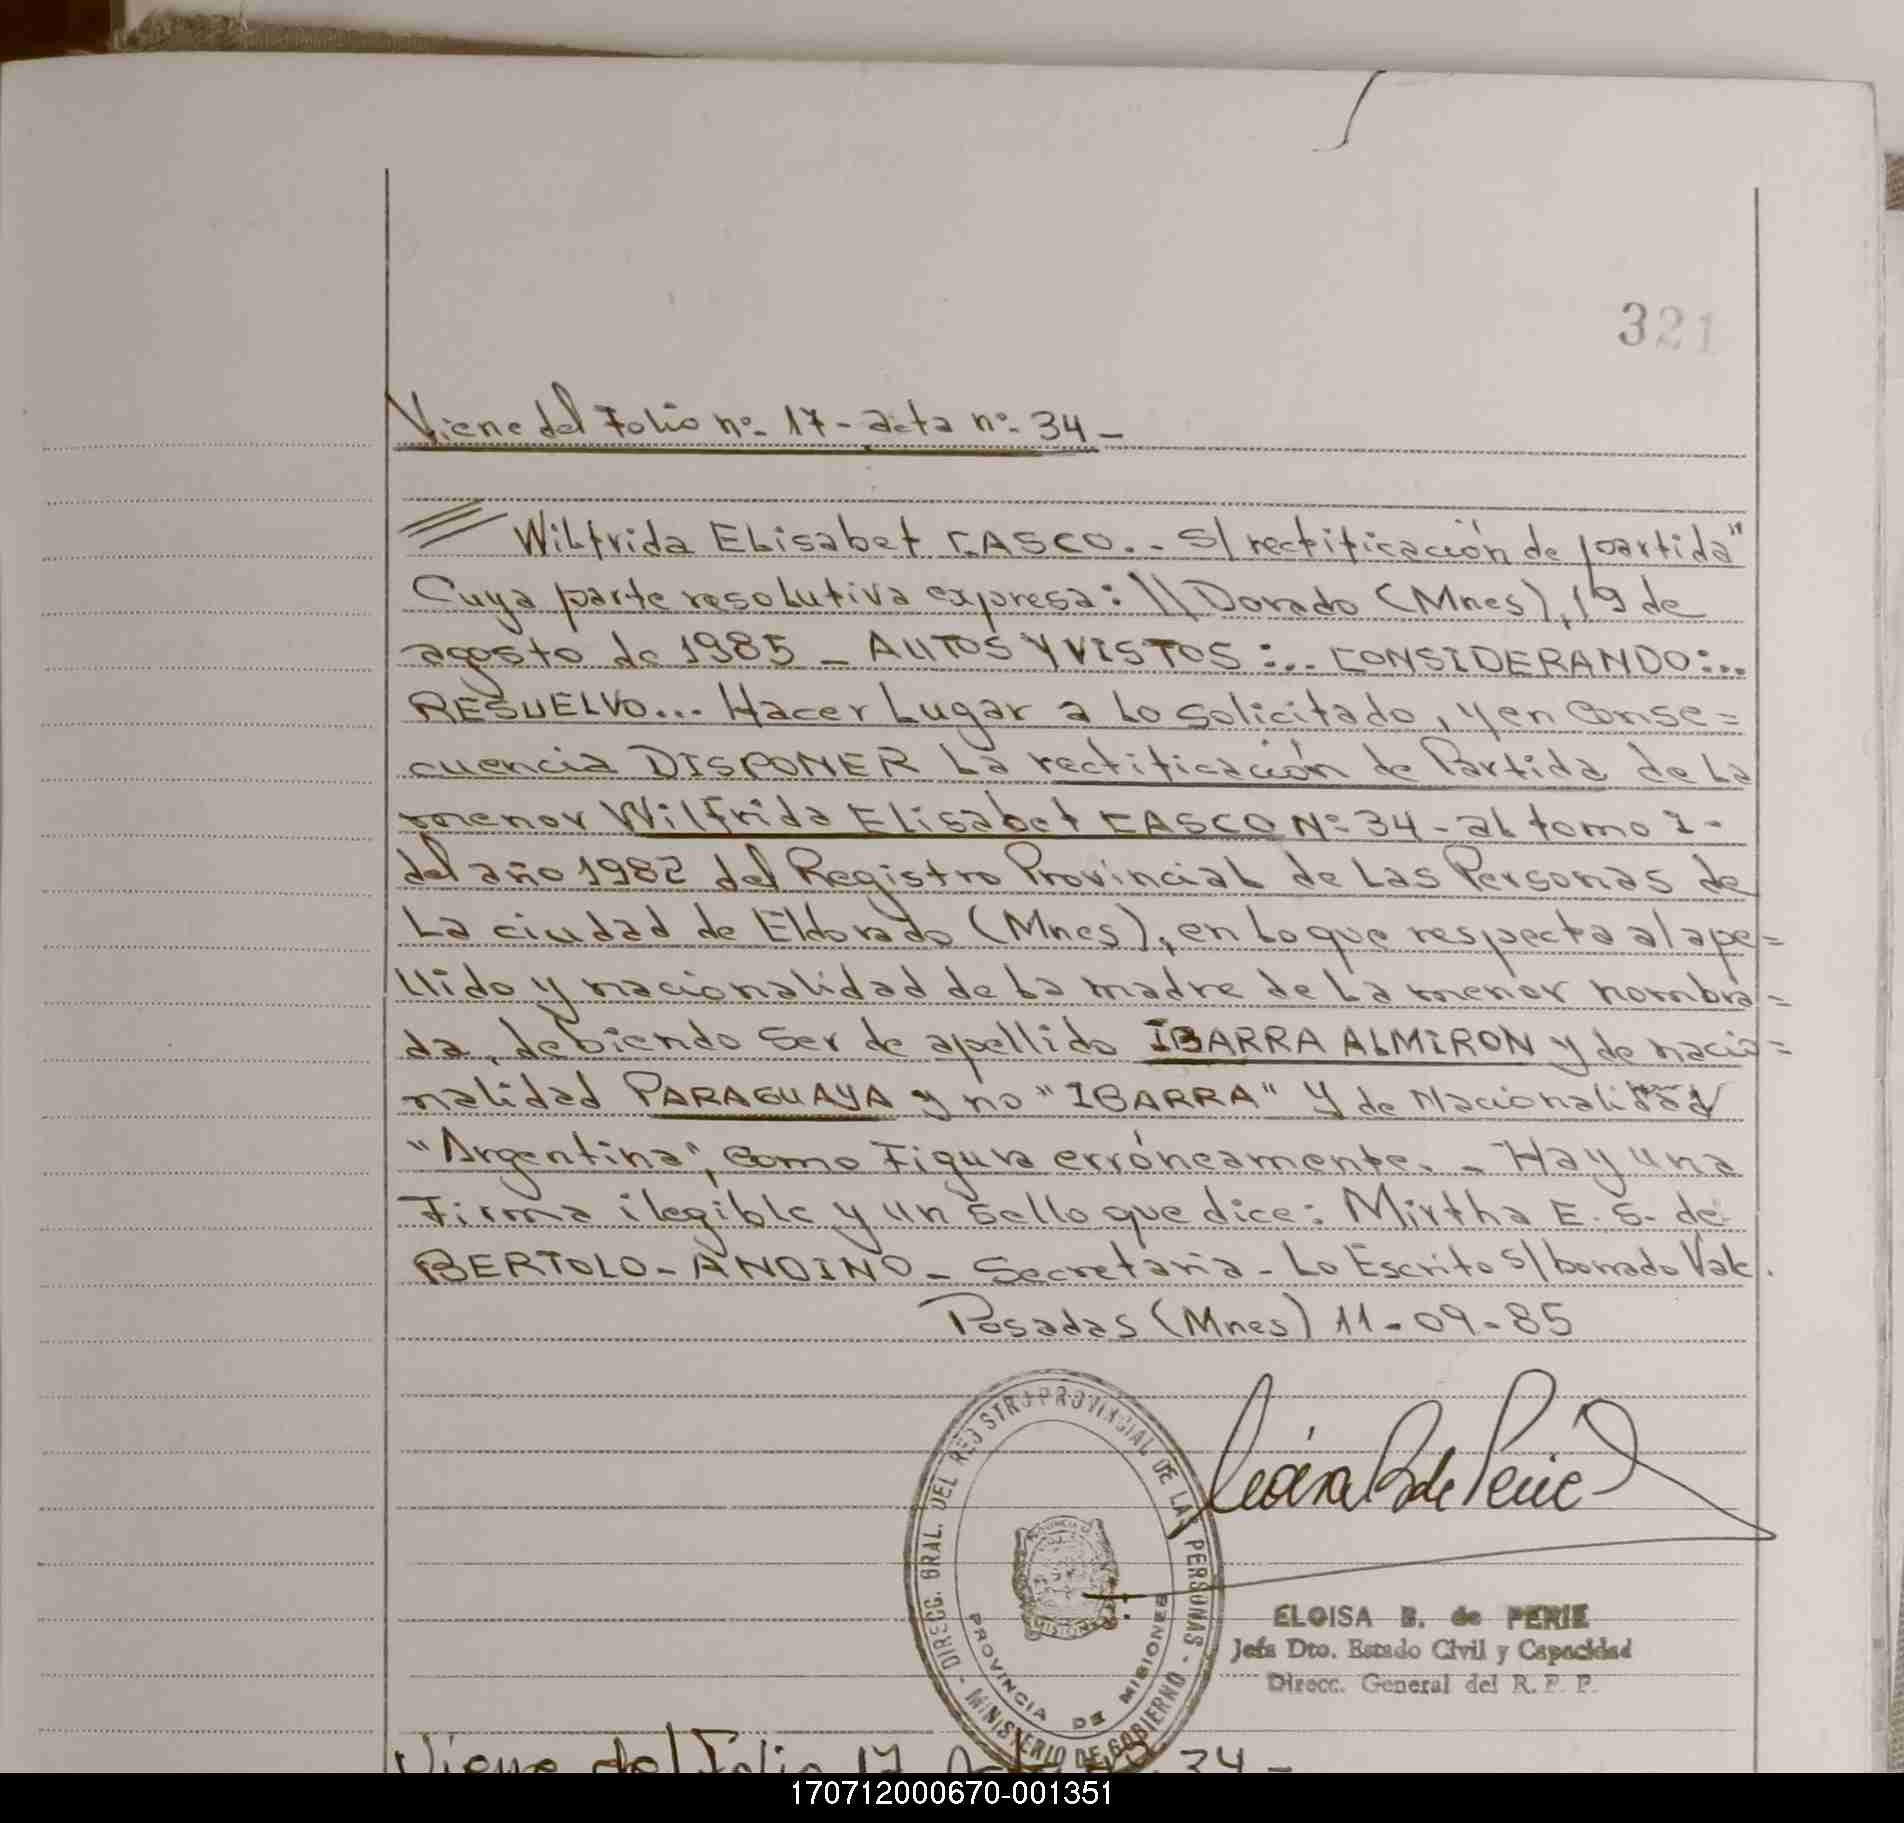 321
Viene del Folio nº 17 - acta nº 34 -
Wilfrida Elisabet CASCO.. - S/ rectificación de partida"
Cuya parte resolutiva expresa: \\ Dorado (Mnes), 19 de
agosto de 1985 - AUTOS Y VISTOS:.. CONSIDERANDO:..
RESUELVO... Hacer Lugar a lo solicitado, y en conse=
cuencia DISPONER la rectificación de Partida de la
menor Wilfrida Elisabet CASCO Nº 34 - al tomo 1 -
del año 1982 del Registro Provincial de las Personas de
la ciudad de Eldorado (Mnes), en lo que respecta al ape=
llido y nacionalidad de la madre de la menor nombra=
da, debiendo ser de apellido IBARRA ALMIRON y de nacio=
nalidad PARAGUAYA y no "IBARRA" y de Nacionalidad
"Argentina", como Figura erróneamente. - Hay una
Firma ilegible y un sello que dice: Mirtha E. S. de
BERTOLO - ANDINO - Secretaria - Lo Escrito s/ borrado Vale.
Posadas (Mnes) 11-09-85
- DIRECC. GRAL. DEL REGISTRO PROVINCIAL DE LAS PERSONAS -
MINISTERIO DE GOBIERNO
PROVINCIA DE MISIONES
B de Perié
ELOISA B. de PERIE
Jefa Dto. Estado Civil y Capacidad
Direcc. General del R. P. P.
Viene del Folio 17 34 -
170712000670-001351